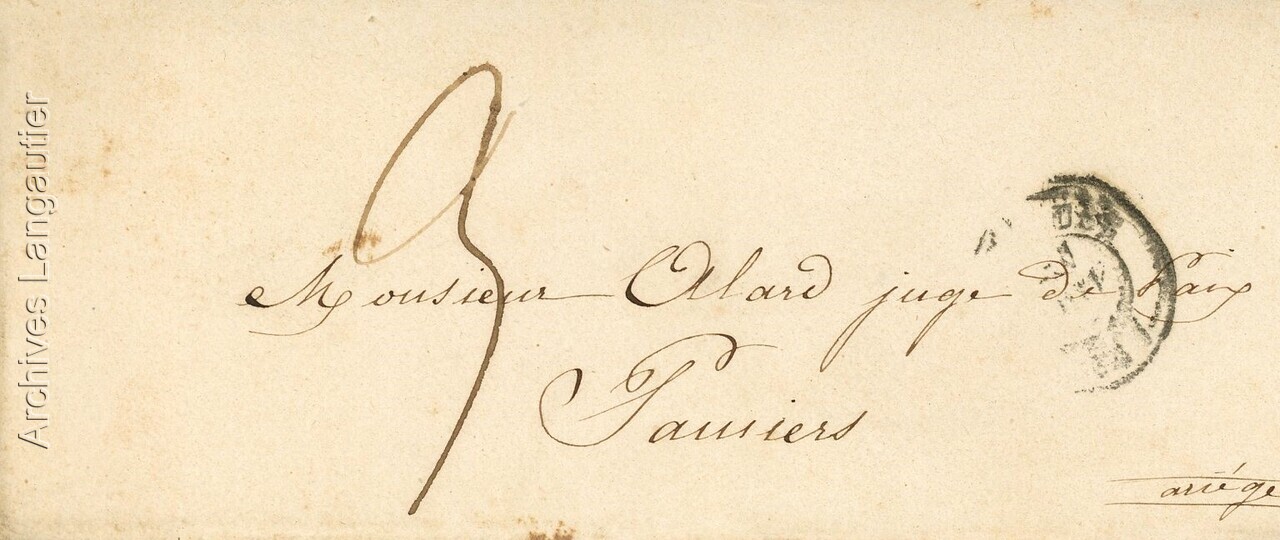 Archives Langautier
3
Monsieur Alard juge de Paix
Pamiers
ariége